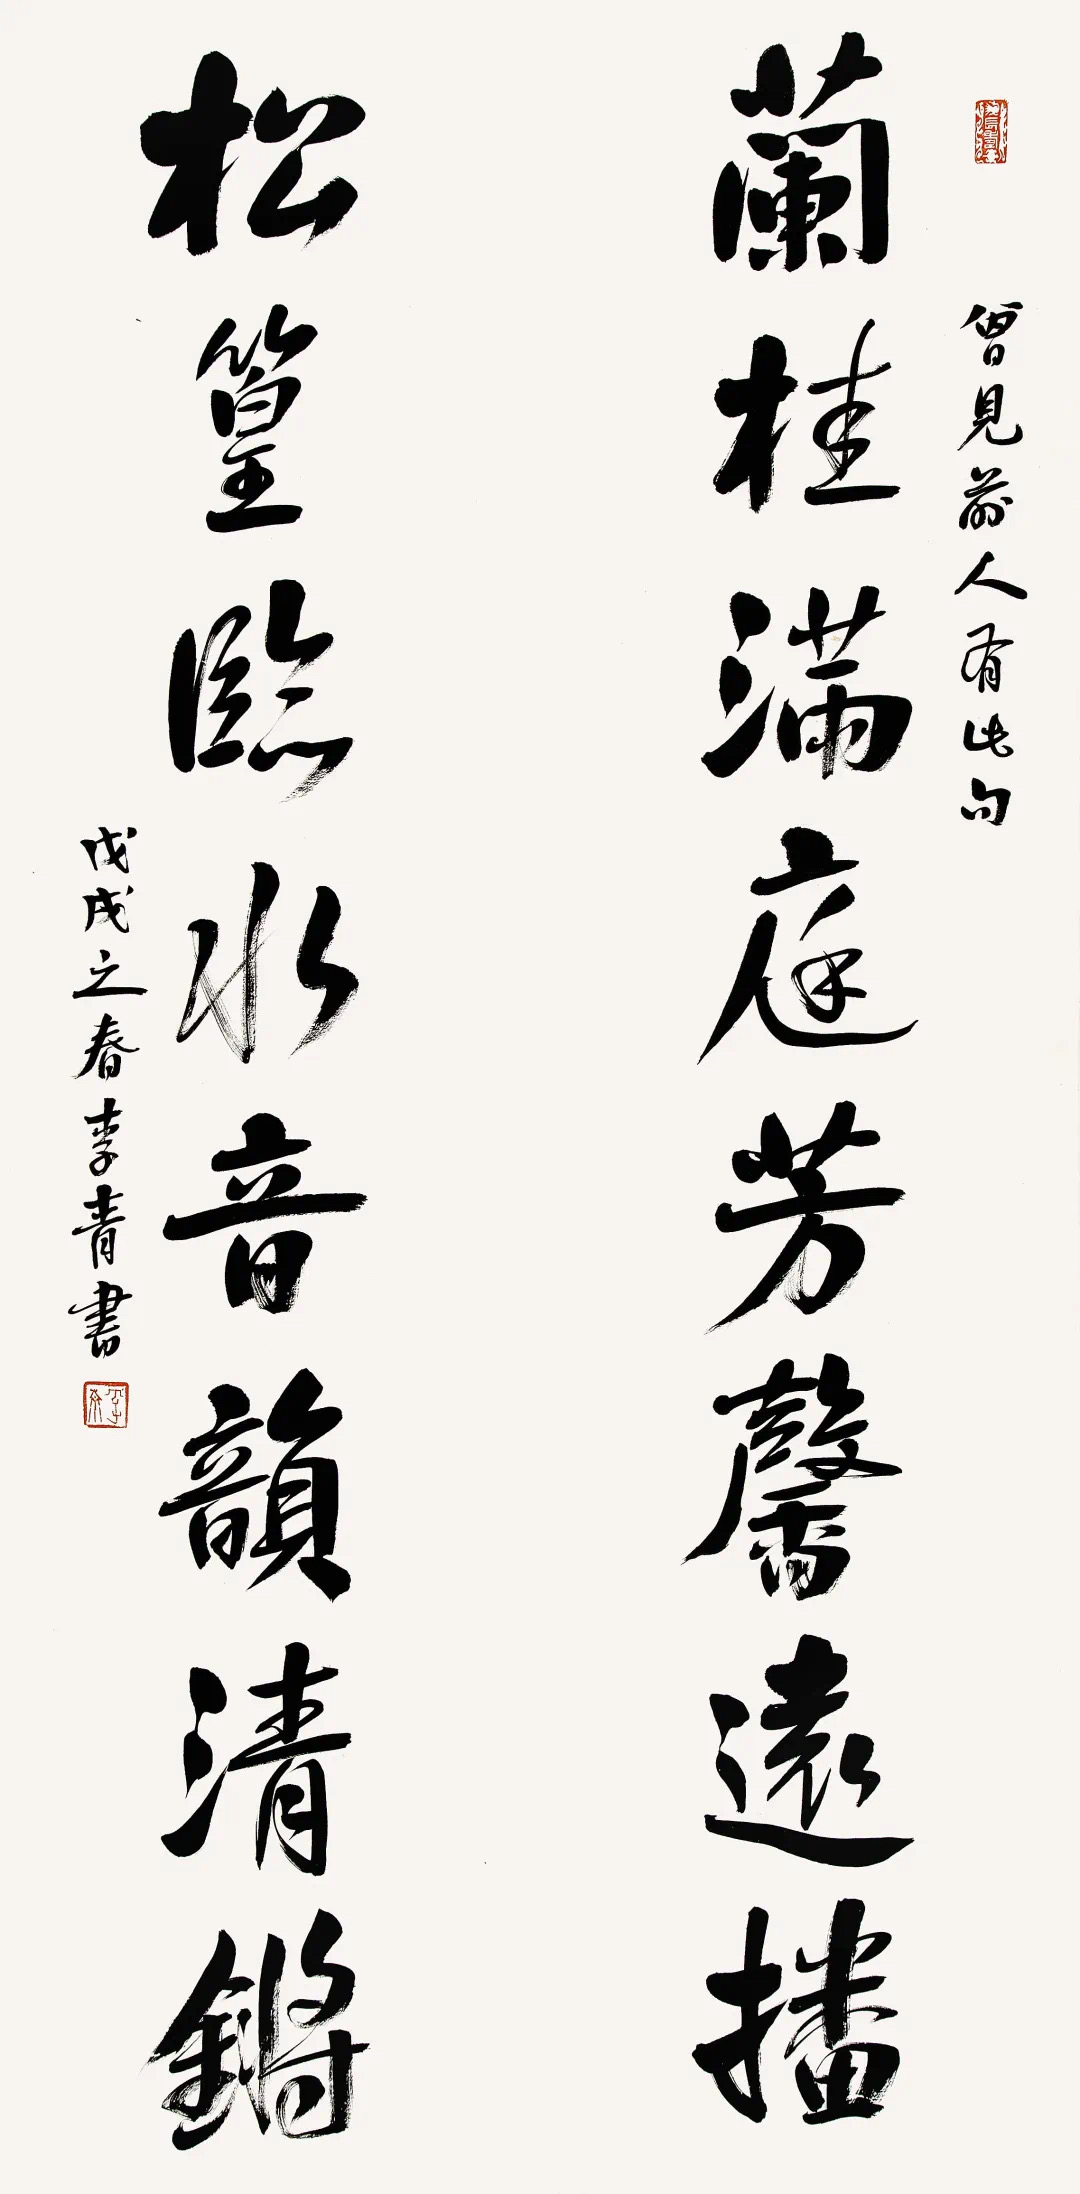 曾見前人有此句
蘭桂滿庭芳馨遠播
松篁臨水音韻清鏘
戊戌之春李青書